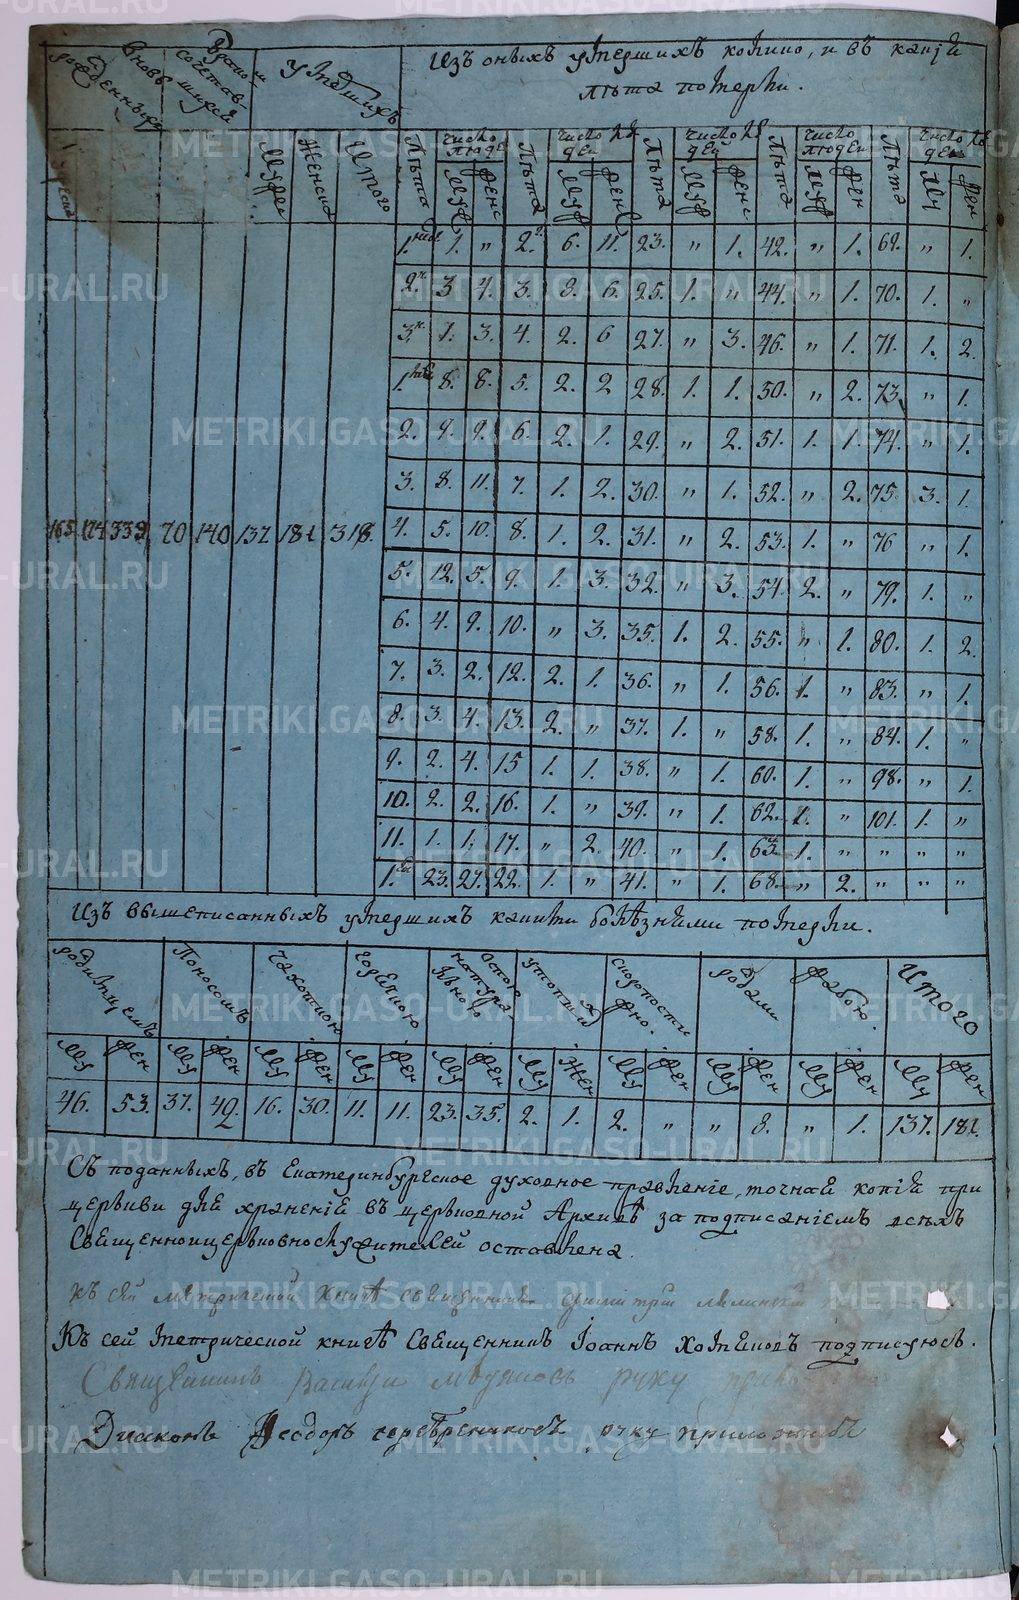 Изъ оныхъ умершихъ колико, и въ какiя
лѣта померли.
рожденныхъ вновь сочетав- шихся умершихъ
Мужес Женска Итого Лѣта число людей Муж Женс Лѣта число людей Муж Жен Лѣта число людей Муж Женс Лѣта число людей Муж Жен Лѣта число людей Му Жен
1. нед 1. " 2. 6. 11. 23. " 1. 42. " 1. 69. " 1.
2. 3 4. 3. 3. 6. 25. 1. " 44. " 1. 70. 1. "
3. 1. 3. 4. 2. 6 27. " 3. 46. " 1. 71. 1. 2.
1. 8. 8. 5. 2. 2 28. 1. 1. 50. " 2. 73. " 1.
2. 9. 9. 6. 2. 1. 29. " 2. 51. 1. 1. 74. " 1.
3. 8. 11. 7. 1. 2. 30. " 1. 52. " 2. 75. 3. 1.
165 174 339 70 140 137 181 318.
4. 5. 10. 8. 1. 2. 31. " 2. 53. 1. " 76 " 1.
5. 12. 5. 9. 1. 3. 32. " 3. 54. 2. " 79. 1. "
6. 4. 9. 10. " 3. 35. 1. 2. 55. " 1. 80. 1. 2.
7. 3. 2. 12. 2. 1. 36. " 1. 56. 1. " 83. " 1.
8. 3. 4. 13. 2. " 37. 1. " 58. 1. " 84. 1. "
9. 2. 4. 15 1. 1. 38. " 1. 60. 1. " 98. " 1.
10. 2. 2. 16. 1. " 39. " 1. 62. 1. " 101. 1. "
11. 1. 1. 17. " 2. 40. " 1. 63. 1. " " " "
1. 23. 27. 22. 1. " 41. " 1. 68. " 2. " " "
Изъ вышеписанныхъ умершихъ какими болѣзнями померли.
родимцемъ Поносомъ чахоткою горячкою оспою натура- льною утопши скоропости жно. родами жабою. Итого
Му Жен Му Жен Му Жен Му Жен Му Жен Му Жен Му Жен Му Жен Му Жен Му Жен
46. 53. 37. 42 16. 30. 11. 11. 23. 35. 2. 1. 2. " " 8. " 1. 137. 181.
Съ поданныхъ, въ Екатеринбургское духовное правленiе, точная копiя при
церькви для храненiя въ церьковной Архивѣ за подписанiемъ всѣхъ
Священноицерьковнослужителей оставлена.
Къ сей метрической книгѣ священникъ Димитрiй
Къ сей метрической книгѣ Священникъ Iоаннъ Хотѣновъ подписуюсь.
Священникъ Василiй руку приложилъ
Дiаконъ Ѳеодоръ серебрениковъ руку приложилъ
METRIKI.GASO-URAL.RU